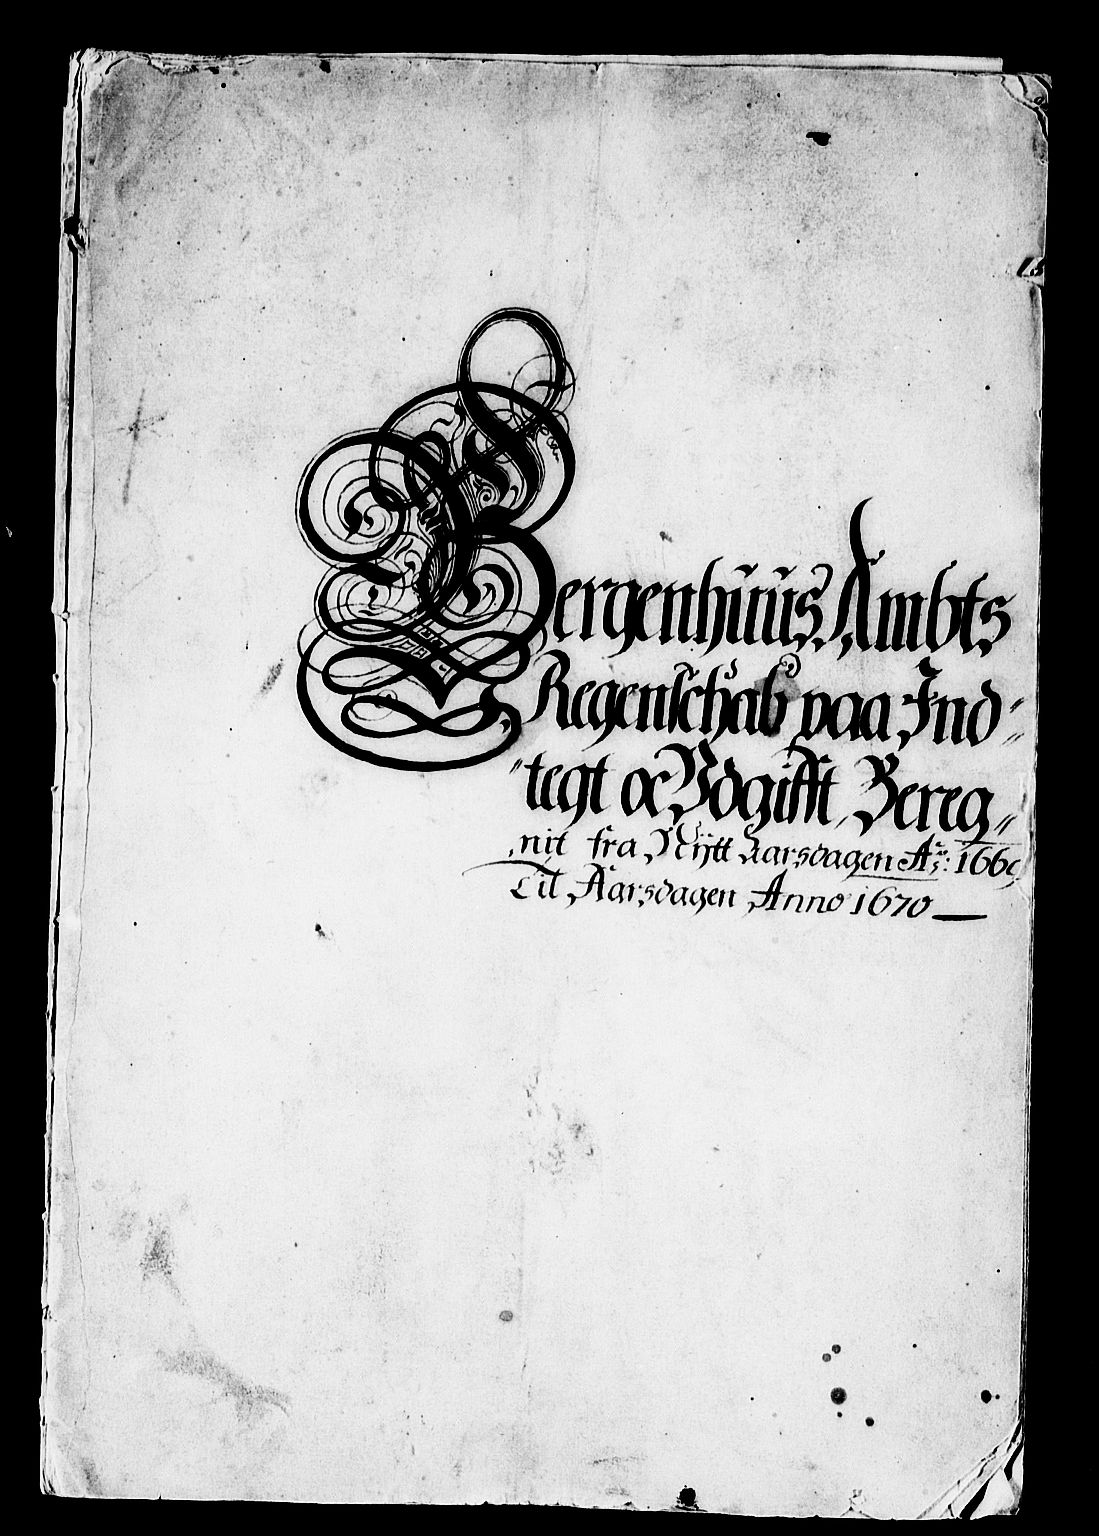 15
Bergenhuus Ambts
Regenschab paa Ind=
=tegt oc Vdgifft, Bereg=
nit fra Nÿtt Aarsdagen Aō: 1669
Til Aarsdagen Anno 1670